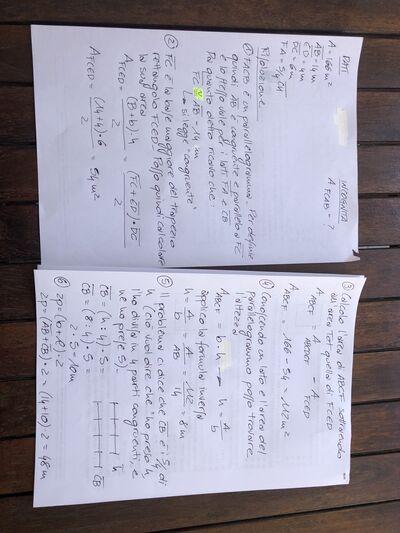 DATI
A = 166 m²
AB = 14 m
ED = 4 m
DC = 6 m
FA = 5/4 CH
INCOGNITA
A FCAB = ?
Risoluzione
① FACB è un parallelogramma. Per definiz
quindi AB è congruente e parallelo a FC
e lo stesso vale per i lati FA e CB
Per quanto detto risulta che:
FC ≅ AB = 14 m
si legge "congruente"
② FC è la base maggiore del trapezio
rettangolo FCED. Posso quindi calcolare
la sua area
A FCED = (B+b)·h / 2 = (FC+ED)·DC / 2
A FCED = (14+4)·6 / 2 = 54 m²
③ Calcolo l'area di ABCF sottraendo
all'area tot quella di FCED
A ABCF = A ABCDEF - A FCED
A ABCF = 166 - 54 = 112 m²
④ Conoscendo un lato e l'area del
parallelogrammo posso trovare
l'altezza
A ABCF = b·h → h = A / b
applico la formula inversa
h = A / b = A / AB = 112 / 14 = 8 m
⑤ Il problema ci dice che CB è i 5/4 di
h (ciò vuol dire che "ho preso h,
l'ho divisa in 4 parti congruenti, e
ne ho prese 5).
CB = (h:4)·5 =
CB = (8:4)·5 =
2·5 = 10 m
h
CB
⑥ 2p = (b+l)·2
2p = (AB+CB)·2 = (14+10)·2 = 48 m